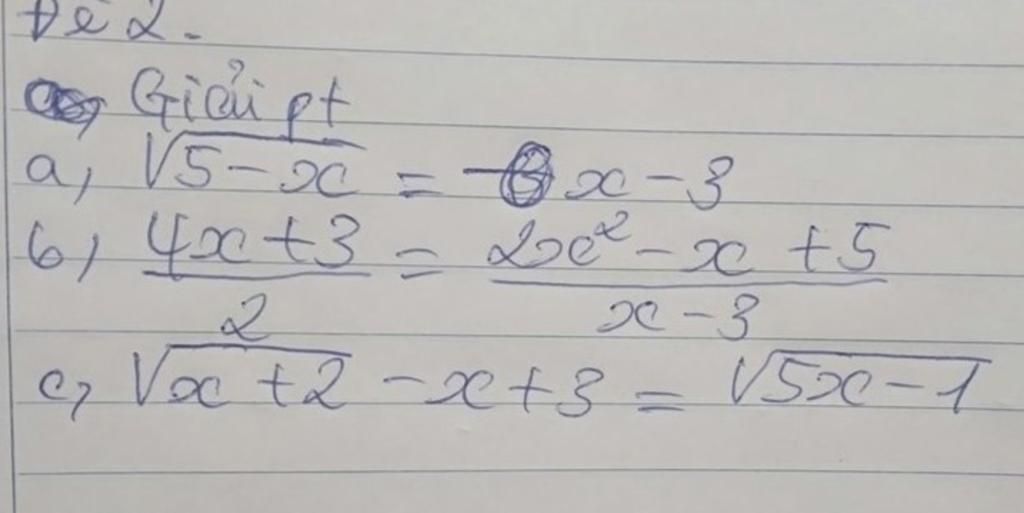 Đề 2.
Giải pt
a, √(5-x) = x-3
b, (4x+3)/2 = (2x²-x+5)/(x-3)
c, √(x+2) -x+3 = √(5x-1)